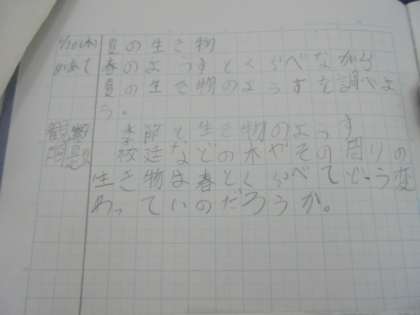 夏の生き物
めあて 春のようすとくらべながら
夏の生き物のようすを調べよ
う。
季節と生き物のようす
校庭などの木やその周りの
生き物は春とくらべてどう変
わっていのだろうか。